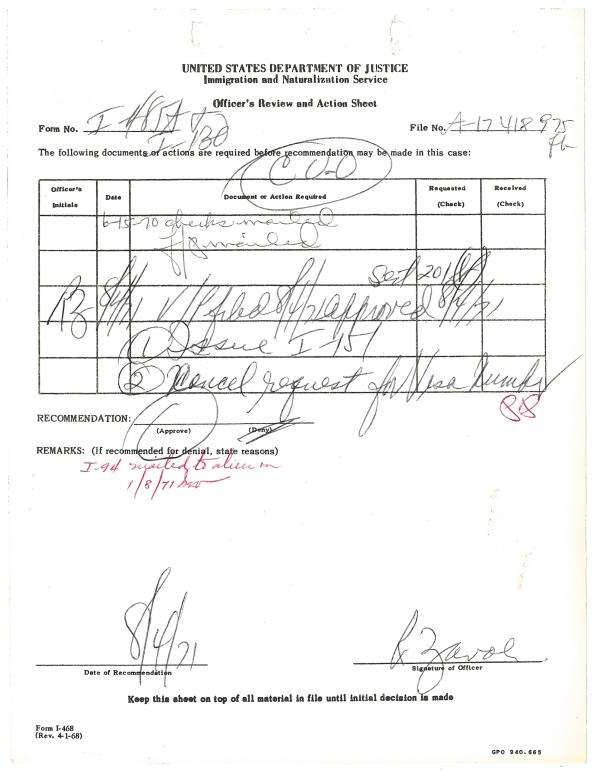 UNITED STATES DEPARTMENT OF JUSTICE
Immigration and Naturalization Service
Officer's Review and Action Sheet
Form No. I-485A
I-130
File No. A-17 418 975
The following documents or actions are required before recommendation may be made in this case:
Officer's Initials Date Document or Action Required Requested (Check) Received (Check)
6-15-70 checks mailed
mailed
Sept 20
RZ 8/4/71 filed 8/4/71 approved 8/4/71
(1) Issue I-151
(2) Cancel request for Visa Number
RECOMMENDATION:
(Approve) (Deny)
REMARKS: (If recommended for denial, state reasons)
I-94 mailed to alien on
1/8/71
8/4/71
R Zavol
Date of Recommendation Signature of Officer
Keep this sheet on top of all material in file until initial decision is made
Form I-468
(Rev. 4-1-68)
GPO 940-665